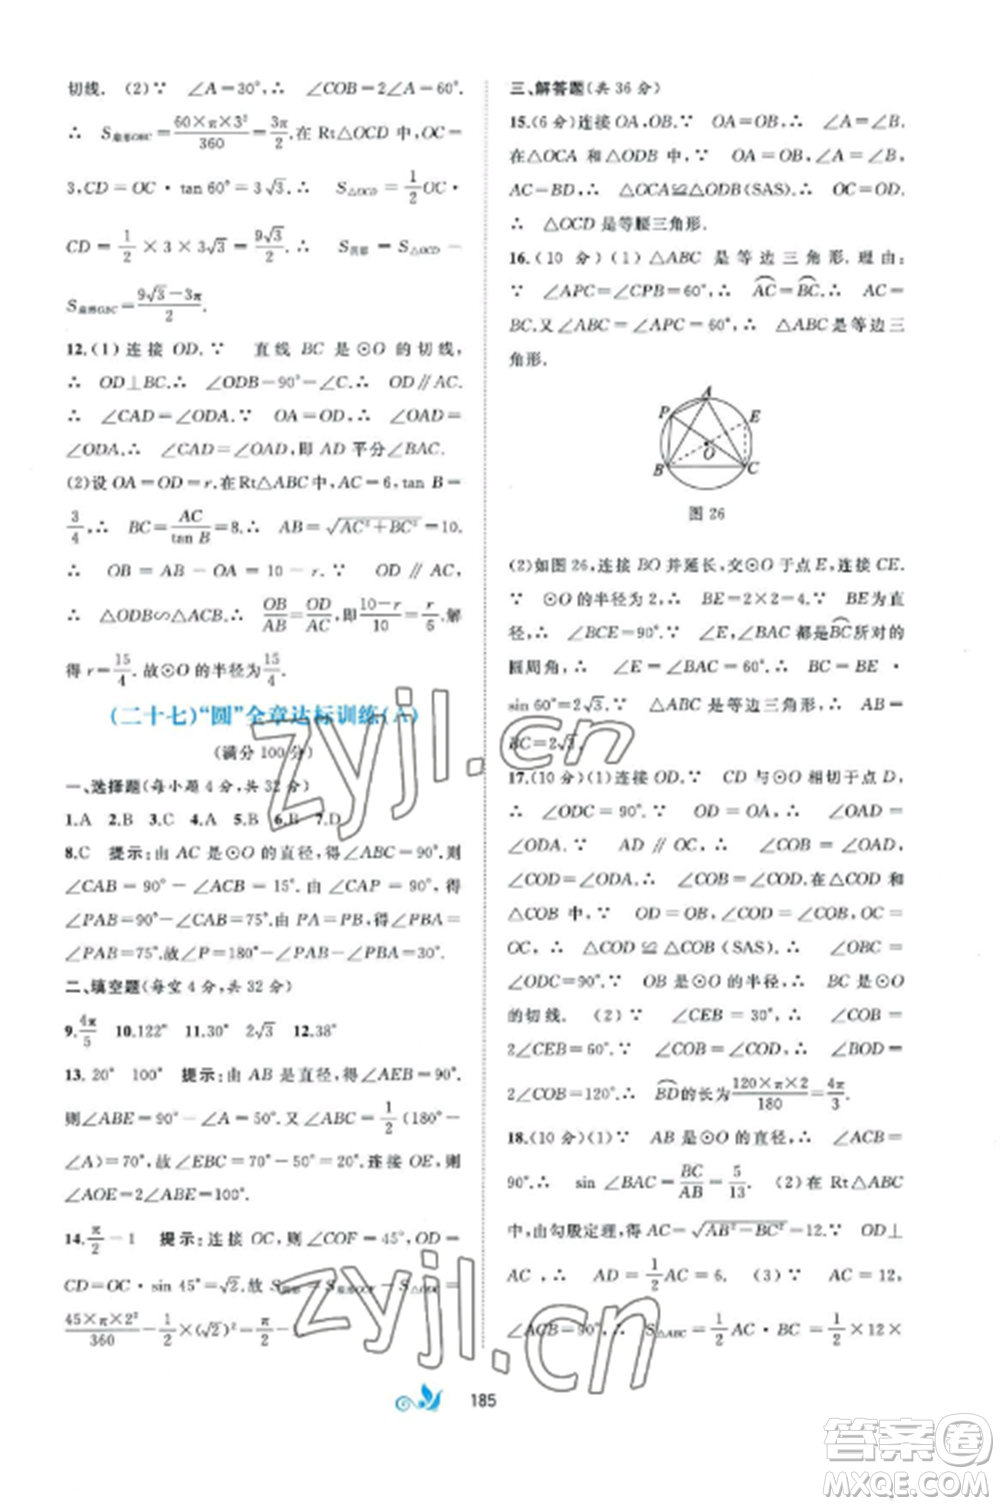 切线. (2)∵ ∠A=30°,∴ ∠COB=2∠A=60°.
∴ S扇形OBC=60×π×3²/360=π/2.在 Rt△OCD 中,OC=
3,CD=OC·tan 60°=3√3.∴ S△OCD=1/2OC·
CD=1/2×3×3√3=9√3/2.∴ S阴影=S△OCD-
S扇形OBC=9√3-3π/2.
12.(1)连接 OD.∵ 直线 BC 是⊙O 的切线,
∴ OD⊥BC.∴ ∠ODB=90°.∴ OD∥AC.
∴ ∠CAD=∠ODA.∵ OA=OD,∴ ∠OAD=
∠ODA.∴ ∠OAD=∠CAD,即 AD 平分∠BAC.
(2)设 OA=OD=r.在 Rt△ABC 中,AC=6,tan B=
3/4,∴ BC=AC/tan B=8.∴ AB=√AC²+BC²=10.
∴ OB=AB-OA=10-r.∵ OD∥AC,
∴ △ODB∽△ACB.∴ OB/AB=OD/AC.∴ 10-r/10=r/6.解
得 r=15/4.故⊙O 的半径为15/4.
(二十七)“圆”全章达标训练(A)
(满分 100 分)
一、选择题(每小题 4 分,共 32 分)
1.A 2.B 3.C 4.A 5.B 6.B 7.D
8.C 提示:由 AC 是⊙O 的直径,得∠ABC=90°,则
∠CAB=90°-∠ACB=15°.由∠CAP=90°,得
∠PAB=90°-∠CAB=75°.由 PA=PB,得∠PBA=
∠PAB=75°.故∠P=180°-∠PAB-∠PBA=30°.
二、填空题(每空 4 分,共 32 分)
9.4π/5 10.122° 11.30° 2√3 12.38°
13.20° 100° 提示:由 AB 是直径,得∠AEB=90°.
则∠ABE=90°-∠A=50°.又∠ABC=1/2(180°-
∠A)=70°,故∠EBC=70°-50°=20°.连接 OE,则
∠AOE=2∠ABE=100°.
14.π/2-1 提示:连接 OC,则∠COF=45°,OD=
CD=OC·sin 45°=√2.故 S阴影=S扇形OCF-S△ODC=
45×π×2²/360-1/2×(√2)²=π/2-1.
三、解答题(共 36 分)
15.(6分)连接 OA,OB.∵ OA=OB,∴ ∠A=∠B.
在△OCA 和△ODB 中,∵ OA=OB,∠A=∠B,
AC=BD,∴ △OCA≌△ODB(SAS).∴ OC=OD.
∴ △OCD 是等腰三角形.
16.(10 分)(1)△ABC 是等边三角形.理由:
∵ ∠APC=∠CPB=60°,∴ AC=BC.∴ AC=
BC.又∠ABC=∠APC=60°,∴ △ABC 是等边三
角形.
P A E O B C
图 26
(2)如图 26,连接 BO 并延长,交⊙O 于点 E,连接 CE.
∵ ⊙O 的半径为 2,∴ BE=2×2=4.∵ BE为直
径,∴ ∠BCE=90°.∵ ∠E,∠BAC 都是BC所对的
圆周角,∴ ∠E=∠BAC=60°.∴ BC=BE·
sin 60°=2√3.即
BC=2√3.
17.(10分)(1)连接 OD.∵ CD 与⊙O 相切于点 D,
∴ ∠ODC=90°.∵ OD=OA,∴ ∠ODA=
∠OAD.∵ AD∥CO,∴ ∠COD=∠ODA,
∠COB=∠OAD.∴ ∠COD=∠COB.在△COD 和
△COB 中,∵ OD=OB,∠COD=∠COB,OC=
OC,∴ △COD≌△COB(SAS).∴ ∠OBC=
∠ODC=90°.∵ OB是⊙O 的半径,∴ BC是⊙O
的切线. (2)∵ ∠CEB=30°,∴ ∠COB=
2∠CEB=60°.∵ ∠COD=∠COB,∴ ∠DOB=
2∠COB=120°.∴ BD的长为120×π×2/180=4π/3.
18.(10分)(1)∵ AB 是⊙O 的直径,∴ ∠ACB=
90°.∴ sin ∠BAC=BC/AB=5/13. (2)在 Rt△ABC
中,由勾股定理,得 AC=√AB²-BC²=12.∵ OD⊥
AC,∴ AD=1/2AC=6. (3)∵ AC=12,
∠ACB=90°,∴ S△ABC=1/2AC·BC=1/2×12×
185
zyjl.cn
zyjl.cn
答案圈
MXQE.COM